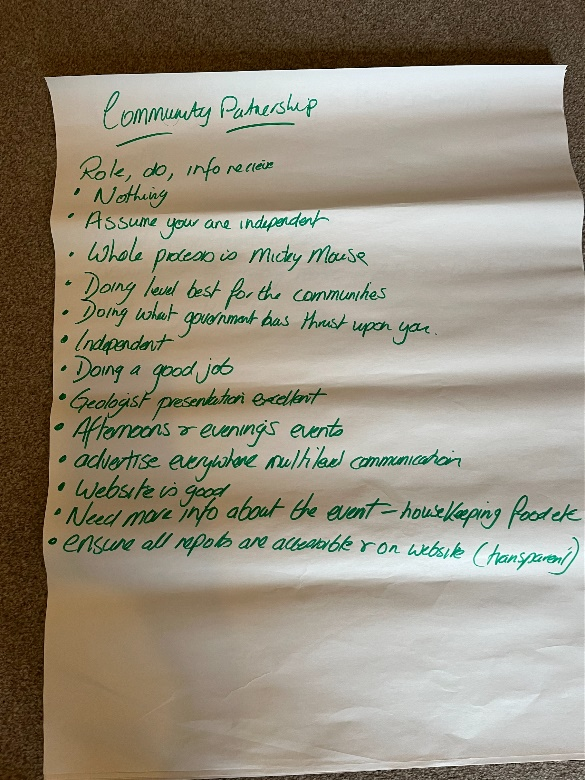 Community Patnership
Role, do, info recieve
• Nothing
• Assume your are independent
• Whole process is Micky Mouse
• Doing level best for the communities
• Doing what government has thrust upon you.
• Independent
• Doing a good job
• Geologist presentation excellent
• Afternoons & evening's events
• advertise everywhere multilevel communication
• Website is good
• Need more info about the event - housekeeping food etc
• ensure all repots are accessible & on website (transparent)